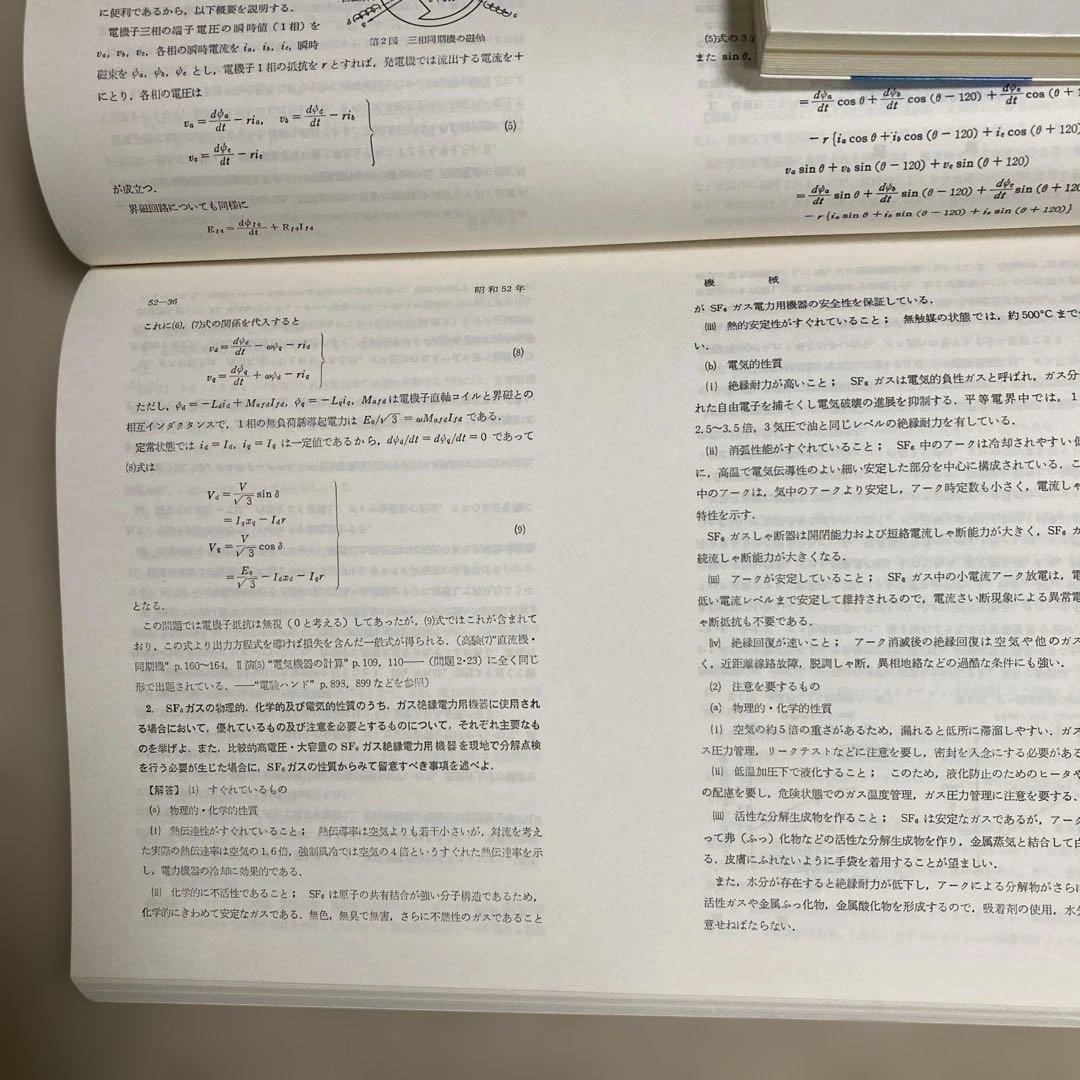 に便利であるから，以下概要を説明する．
電機子三相の端子電圧の瞬時値（1相）を
va, vb, vc, 各相の瞬時電流を ia, ib, ic, 瞬時
第2図　三相同期機の磁軸
磁束を ψa, ψb, ψc とし，電機子1相の抵抗を r とすれば，発電機では流出する電流を＋
にとり，各相の電圧は
va = dψa/dt − ria,　vb = dψb/dt − rib
vc = dψc/dt − ric
(5)
が成立つ．
界磁回路についても同様に
Efd = dψfd/dt + RfdIfd
(5)式の3
また sin θ,
= dψa/dt cos θ + dψb/dt cos (θ − 120) + dψc/dt cos (θ +
− r {ia cos θ + ib cos (θ − 120) + ic cos (θ + 120)
va sin θ + vb sin (θ − 120) + vc sin (θ + 120)
= dψa/dt sin θ + dψb/dt sin (θ − 120) + dψc/dt sin (θ + 120
− r {ia sin θ + ib sin (θ − 120) + ic sin (θ + 120)}
52—36
昭和52年
これに(6)，(7)式の関係を代入すると
vd = dψd/dt − ωψq − rid
vq = dψq/dt + ωψd − riq
(8)
ただし，ψd = −Ldid + MafdIfd, ψq = −Lqiq, Mafd は電機子直軸コイルと界磁との
相互インダクタンスで，1相の無負荷誘導起電力は E0/√3 = ωMafdIfd である．
定常状態では id = Id, iq = Iq は一定値であるから，dψd/dt = dψq/dt = 0 であって
(8)式は
Vd = V/√3 sin δ
= Iqxq − Idr
Vq = V/√3 cos δ
= E0/√3 − Idxd − Iqr
(9)
となる．
この問題では電機子抵抗は無視（0と考える）してあったが，(9)式ではこれが含まれて
おり，この式より出力方程式を導けば損失を含んだ一般式が得られる．（高験(7)“直流機・
同期機” p.160〜164, Ⅱ演(5)“電気機器の計算” p.109, 110——（問題2・23）に全く同じ
形で出題されている．——“電験ハンド” p.898, 899などを参照）
2.　SF₆ガスの物理的，化学的及び電気的性質のうち，ガス絶縁電力用機器に使用され
る場合において，優れているもの及び注意を必要とするものについて，それぞれ主要なも
のを挙げよ．また，比較的高電圧・大容量の SF₆ ガス絶縁電力用機器を現地で分解点検
を行う必要が生じた場合に，SF₆ガスの性質からみて留意すべき事項を述べよ．
【解答】(1)　すぐれているもの
(a)　物理的・化学的性質
(ⅰ)　熱伝達性がすぐれていること；　熱伝導率は空気よりも若干小さいが，対流を考え
た実際の熱伝達率は空気の1.6倍，強制風冷では空気の4倍というすぐれた熱伝達率を示
し，電力機器の冷却に効果的である．
(ⅱ)　化学的に不活性であること；　SF₆ は原子の共有結合が強い分子構造であるため，
化学的にきわめて安定なガスである．無色，無臭で無害，さらに不燃性のガスであること
機　　械
が SF₆ ガス電力用機器の安全性を保証している．
(ⅲ)　熱的安定性がすぐれていること；　無触媒の状態では，約500℃まで
い．
(b)　電気的性質
(ⅰ)　絶縁耐力が高いこと；　SF₆ ガスは電気的負性ガスと呼ばれ，ガス分
れた自由電子を捕そくし電気破壊の進展を抑制する．平等電界中では，1
2.5〜3.5倍，3気圧で油と同じレベルの絶縁耐力を有している．
(ⅱ)　消弧性能がすぐれていること；　SF₆ 中のアークは冷却されやすい
に，高温で電気伝導性のよい細い安定した部分を中心に構成されている．こ
中のアークは，気中のアークより安定し，アーク時定数も小さく，電流しゃ
特性を示す．
SF₆ ガスしゃ断器は開閉能力および短絡電流しゃ断能力が大きく，SF₆ ガ
続流しゃ断能力が大きくなる．
(ⅲ)　アークが安定していること；　SF₆ ガス中の小電流アーク放電は，電
低い電流レベルまで安定して維持されるので，電流さい断現象による異常電
ゃ断抵抗も不要である．
(ⅳ)　絶縁回復が速いこと；　アーク消滅後の絶縁回復は空気や他のガス
く，近距離線路故障，脱調しゃ断，異相地絡などの過酷な条件にも強い．
(2)　注意を要するもの
(a)　物理的・化学的性質
(ⅰ)　空気の約5倍の重さがあるため，漏れると低所に滞溜しやすい．ガス
ス圧力管理，リークテストなどに注意を要し，密封を入念にする必要がある
(ⅱ)　低温加圧下で液化すること；　このため，液化防止のためのヒータや
の配慮を要し，危険状態でのガス温度管理，ガス圧力管理に注意を要する．
(ⅲ)　活性な分解生成物を作ること；　SF₆ は安定なガスであるが，アーク
って弗（ふっ）化物などの活性な分解生成物を作り，金属蒸気と結合して白
る．皮膚にふれないように手袋を着用することが望ましい．
また，水分が存在すると絶縁耐力が低下し，アークによる分解物がさらに
活性ガスや金属ふっ化物，金属酸化物を形成するので，吸着剤の使用，水分
意せねばならない．